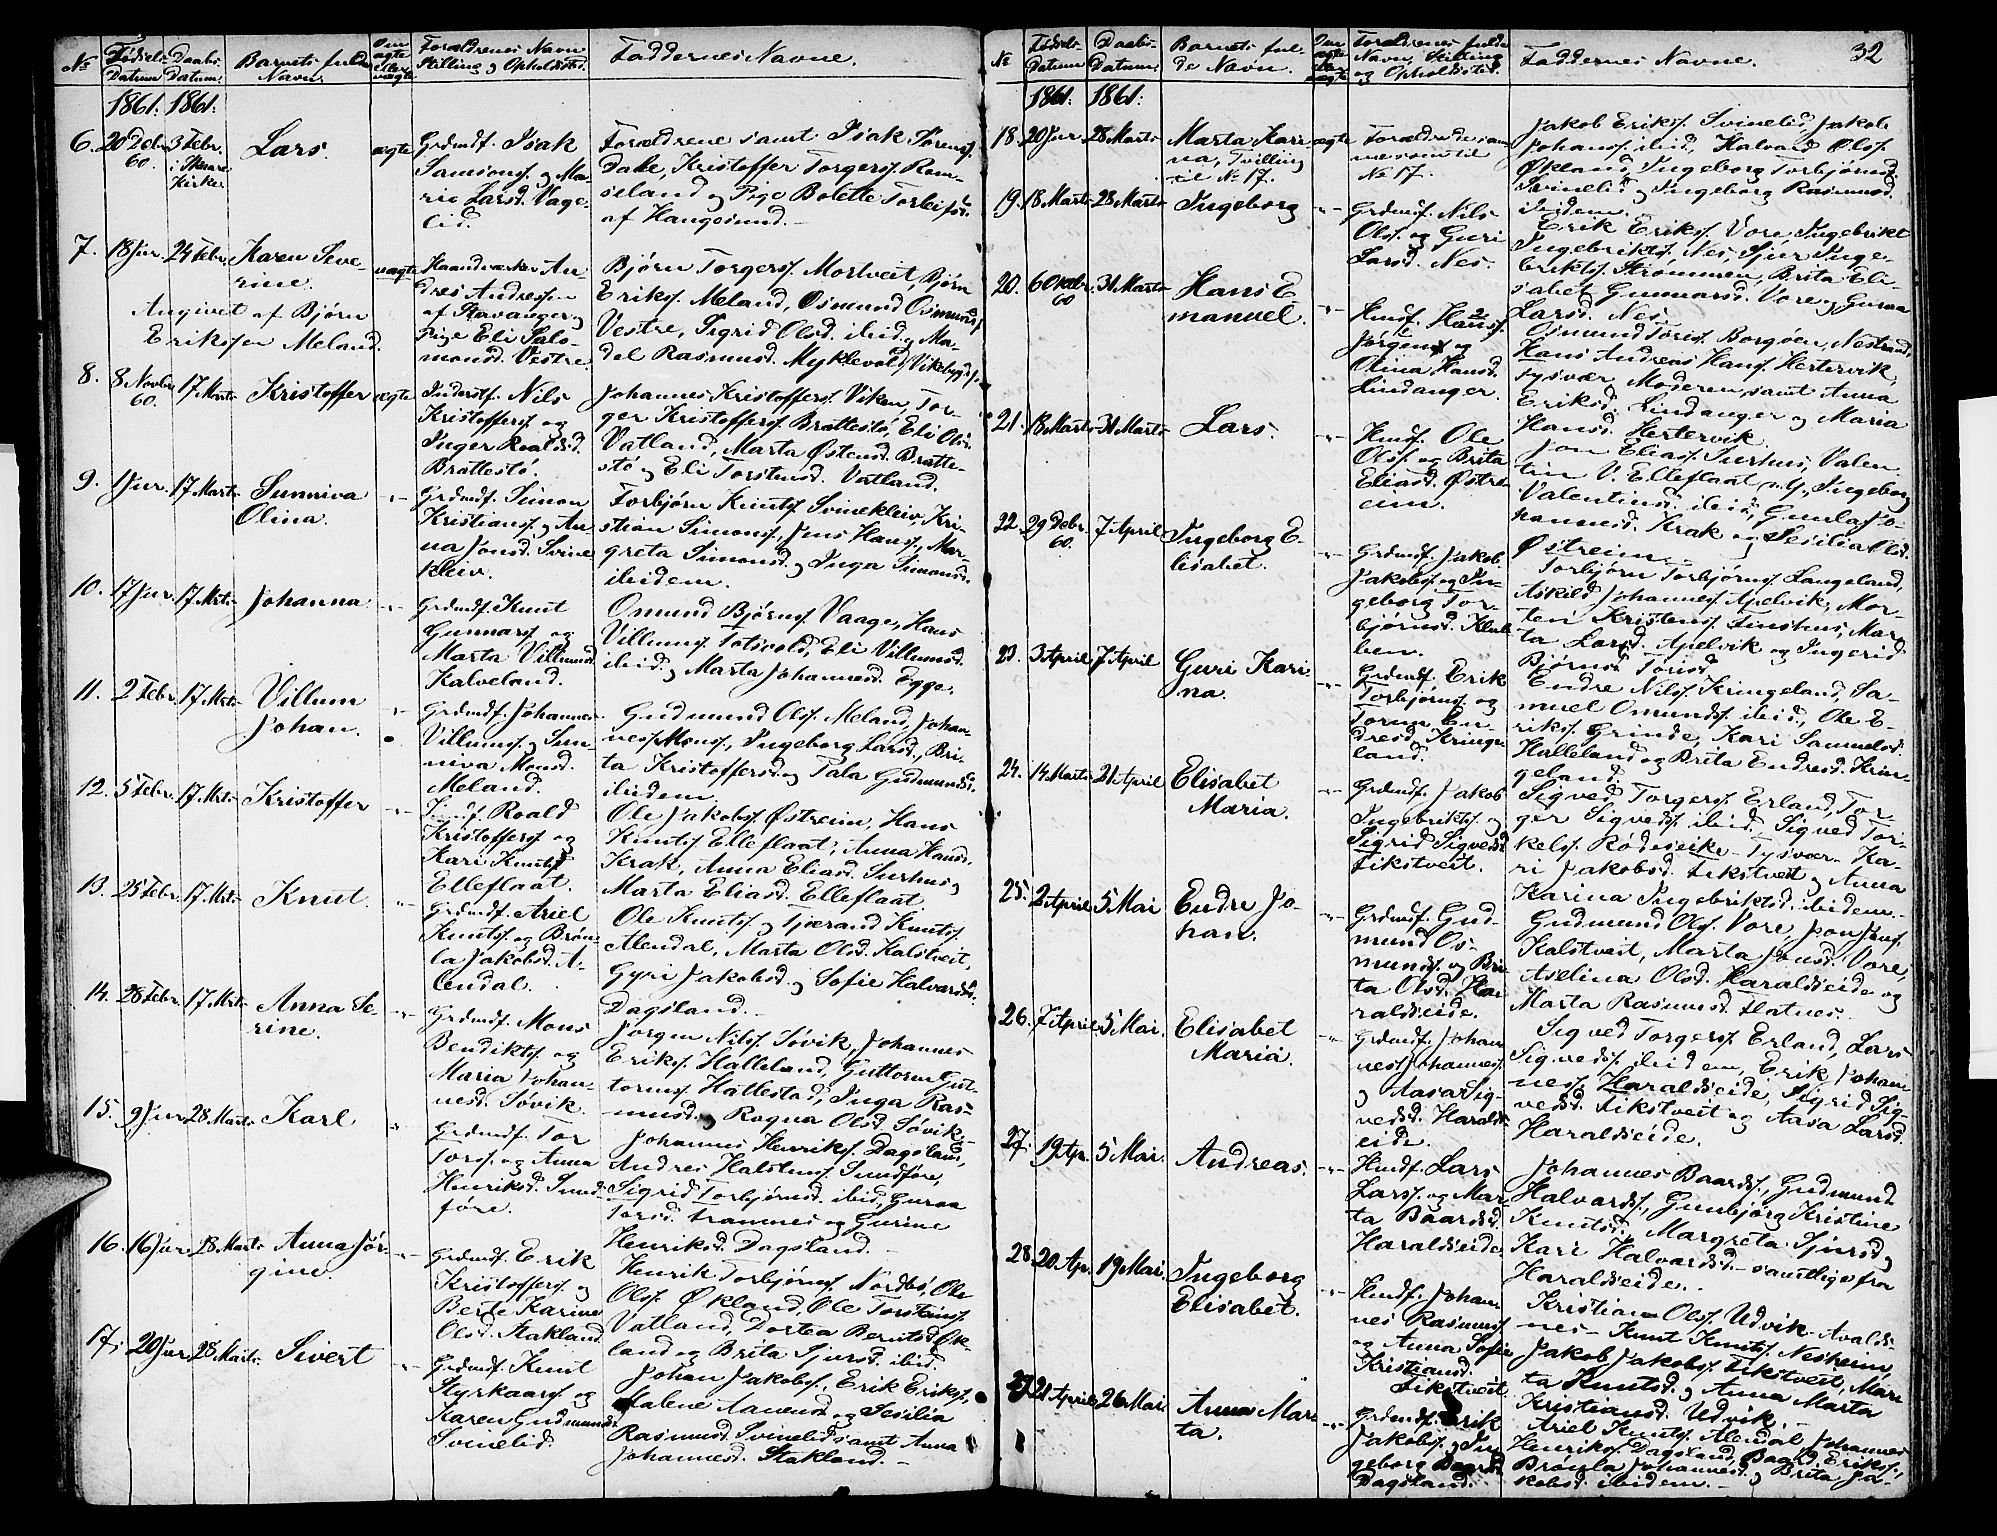 No
Fødsels
Datum
Daabs
Datum
Barnets fulde
Navn
Om
ægte
eller
uægte
Forældrenes Navn
Stilling og Opholdssted.
Faddernes Navne.
1861. 1861.
6. 20 Debr. 60. 3 Febr. i Skaare Kirke
Lars.
ægte
Grdmdf. Isak
Samsons. og Ma-
rie Larsd. Vage-
lid.
Forældrene samt Isak Sørens.
Dale, Kristoffer Torgers. Ram-
seland og Pige Bolette Torbjør.
af Haugesund.
7. 18 Jur. 24 Febr.
Karen Seve-
rine.
Angivet af Bjørn
Eriksen Meland.
uægte
Haandværker An-
dres Andressen
af Stavanger og
Pige Eli Salo-
monsd. Vestre
Bjørn Torgers. Mortveit, Bjørn
Eriks. Meland, Osmund Osmunds.
Vestre, Sigrid Olsd. ibid. og Ma-
del Rasmusd. Myklevold, Vikebygd.
8. 8 Novbr. 60. 17 Marts
Kristoffer
ægte
Inderstf. Nils
Kristoffers. og
Inger Roaldsd.
Brattestø.
Johannes Kristoffers. Viken, Tor-
ger Kristoffers. Brattestø, Eli Olsd.
Vatland, Marta Østensd. Bratte-
stø og Eli Torstensd. Vatland.
9. 1 Jur. 17 Marts
Sunniva
Olina.
Grdmdf. Simon
Kristians. og An-
na Jonsd. Svine
kleiv.
Torbjørn Knuts. Svinekleiv, Kri-
stian Simons., Jens Hans., Mar-
greta Simonsd. og Inga Simonsd.
ibidem.
10. 17 Jur. 17 Mrts
Johanna
Grdmdf. Knut
Gunnars. og
Marta Villumsd.
Kalveland.
Omund Bjørns. Vaage, Hans
Villums. Totsvold, Eli Villumsd.
ibid. og Marta Johannesd. Egge.
11. 2 Febr. 17 Mrts
Villum
Johan.
Grdmdf. Johannes
Villums. og Sun-
niva Monsd.
Meland.
Gudmund Ols. Meland, Johan
nes Mons., Ingeborg Larsd., Bri-
ta Kristoffersd. og Tala Gudmundsd.
ibidem.
12. 5 Febr. 17 Mrts
Kristoffer
Roald
Kristoffers. og
Kari Knutsd.
Elleflaat.
Ole Jakobs. Østreim, Hans
Knuts. Elleflaat, Anna Hansd.
Krak, Anna Eliasd. Surhus og
Marta Eliasd. Elleflaat
13. 25 Febr. 17 Mrts
Knut.
Grdmdf. Ariel
Knuts. og Brøn-
la Jakobsd. A-
lendal.
Ole Knuts. og Tjærand Knuts.
Alendal, Marta Olsd. Kalstveit,
Gyri Jakobsd. og Sofie Halvardsd.
Dagsland.
14. 28 Febr. 17 Mrts
Anna Se-
rine.
Grdmdf. Mons
Bendikts. og
Maria Johan-
nesd. Søvik.
Jørgen Nils. Søvik, Johannes
Eriks. Halleland, Guttorm Gut-
torms. Hallestad, Inga Ras-
musd. og Ragna Olsd. Søvik.
15. 9 Jur 28 Marts
Karl
Grdmdf. Tor
Tors. og Anna
Henriksd. Sund-
føre.
Johannes Henriks. Dagsland,
Andres Halstens. Sundføre,
Sigrid Torbjørnsd. ibid, Guroa
Torsd. Framnes og Gurine
Henriksd. Dagsland.
16. 16 Jur. 28 Marts
Anna Jør-
gine.
Grdmdf. Erik
Kristoffers. og
Berte Karine
Olsd. Stakland.
Henrik Torbjørns. Nordbø, Ole
Ols. Økland, Ole Torsteins.
Vatland, Dortea Berntsd. Øk-
land og Brita Sjursd. ibid.
17. 20 Jur 28 Marts
Sivert
Grdmdf. Knut
Styrkaars. og
Karen Gudmunds.
Svinelid.
Johan Jakobs., Erik Eriks.,
Malene Aanensd. og Sesilia
Rasmusd. Svinelid samt Anna
Johannesd. Stakland.
No
Fødsels
Datum
Daabs-
Datum.
Barnets ful-
de Navn.
Om
ægte
eller
uægte
Forældrenes fulde
Navn, Stilling
og Opholdssted.
Faddernes Navne.
32
1861. 1861.
18. 20 Jur 28 Marts
Marta Kari
na, Tvilling
til No 17.
ægte
Forældrene de sam
me som til
No 17.
Jakob Eriks. Svinelid, Jakob
Johans. ibid, Halvard Ols.
Økland, Ingeborg Torbjørnsd.
Svinelid og Ingeborg Rasmusd.
ibidem.
19. 18 Marts 28 Marts
Ingeborg
Grdmdf. Nils
Ols. og Guri
Larsd. Nes.
Erik Eriks. Vore, Ingebrikt
Ingebrikts. Nes, Sjur Inge-
brikts. Strømmen, Brita Eli-
sabet Gunnarsd. Vore og Guroa
Larsd. Nes.
20. 6 Oktbr. 60 31 Marts
Hans E
manuel.
Husf. Hans
Jørgens. og
Olina Hansd.
Lindanger.
Osmund Toris. Borgøen, Nestrand,
Hans Andreas Hans. Hertervik,
Tysvær, Moderen, samt Anna
Eriksd. Lindanger og Maria
Hansd. Hertervik.
21. 18 Marts 31 Marts
Lars.
Husf. Ole
Ols. og Brita
Eliasd. Østre-
eim.
Jon Elias. Surhus, Valen
tin V. Elleflaat, Ingeborg
Valentinsd. ibid, Gunla Jo-
hannesd. Krak og Sesilia Olsd.
Østreim.
22. 29 Debr. 60. 7 April
Ingeborg E-
lisabet.
Grdmdf. Jakob
Jakobs. og In-
geborg Tor-
bjørnsd.
Torbjørn Torbjørns. Langeland,
Askild Johannes. Apelvik, Mor-
ten Kristens. Finshus, Mar-
ta Larsd. Apelvik og Ingerid
Bjørnsd. Torisd.
23. 3 April 7 April
Guri Kari
na.
Grdmdf. Erik
Torbjørns. og
Torun En-
dresd. Kringe
land.
Endre Nils. Kringeland, Sa-
muel Omunds. ibid., Ole E-
riks. Grinde, Kari Samuelsd.
Halleland og Brita Endresd. Krin-
geland.
24. 14 Marts 21 April
Elisabet
Maria.
Grdmdf. Jakob
Ingebrikts. og
Sigrid Sigvedsd.
Fikstveit.
Sigved Torgers. Erland, Tor-
ger Sigveds. ibid, Sigved Tor-
kels. Rødeseike - Tysvær - Ka-
ri Jakobsd. Fikstveit og Anna
Karina Ingebriktsd. ibidem.
25. 2 April 5 Mai
Endre Jo-
han.
Grdmdf. Gud-
mund Os-
munds. og Bri-
ta Olsd. Ha-
raldseide.
Gudmund Ols. Vore, Jon Jons.
Kalstveit, Marta Jonsd. Vore,
Aselina Olsd. Haraldseide og
Marta Rasmusd. Hatnes.
26. 7 April 5 Mai.
Elisabet
Maria.
Grdmdf. Johan
nes Johannes.
og Aasa Sig-
vedsd. Haralds-
eide.
Sigved Torgers. Erland, Lars
Sigveds. ibidem, Erik Johan
nes. Haraldseide, Sigrid Sig-
vedsd. Fikstveit og Aasa Larsd.
Haraldseide.
27. 19 Ap. 5 Mai.
Andreas.
Husf. Lars
Lars. og Mar-
ta Baardsd.
Haraldseide
Johannes Baards., Gudmund
Halvards., Gunbjørg Kristine
Knutsd., Margreta Sjursd. og
Kari Halvardsd. - samtlige fra
Haraldseide.
28. 20 Ap. 19 Mai.
Ingeborg
Elisabet.
Husf. Johan
nes Rasmus.
og Anna Sofie
Kristiansd.
Fikstveit.
Kristian Ols. Udvik - Avalds-
nes - Knut Knuts. Nesheim,
Jakob Jakobs. Fikstveit, Mari
ta Knutsd. og Anna Marta
Kristiansd. Udvik.
29. 21 April 26 Mai
Anna Mar
ta.
Grdmdf. Erik
Jakobs. og In-
geborg Baardsd.
Dagsland.
Ariel Knuts. Alendal, Johannes
Henriks. Dagsland, Baard Eriks.,
Brønla Johannesd. og Brita Ja-
kobsd. ibidem.